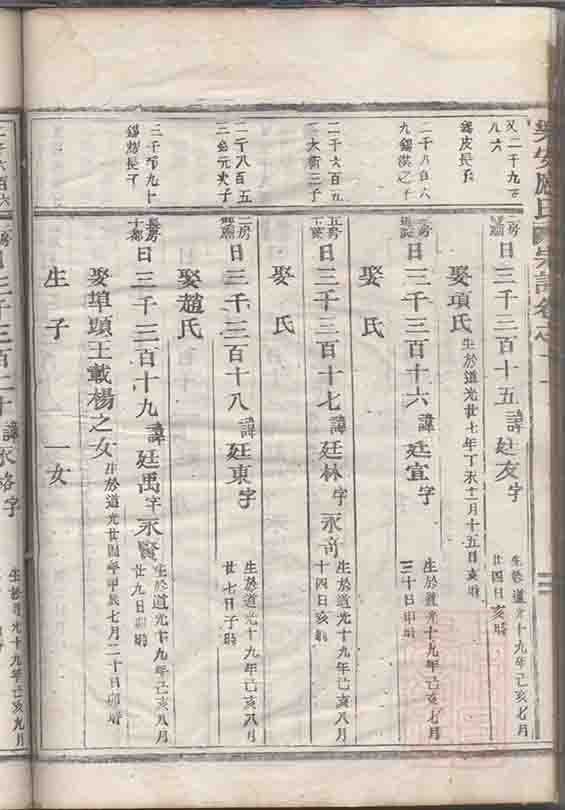 又二千九百
八六
錫皮長子
二房
日三千三百十五諱廷友字
生於道光十九年己亥七月
廿四日亥時
娶項氏生於道光廿七年丁未十二月十五日亥時
二千八百六
九錫淇之子
三房
日三千三百十六諱廷宜字
生於道光十九年己亥七月
三十日申時
娶氏
二千六百五
三子
五房
日三千三百十七諱廷林字永奇
生於道光十九年己亥八月
十四日亥時
娶氏
二千八百五
三房
日三千三百十八諱廷東字
生於道光十九年己亥八月
廿七日子時
娶趙氏
長子
長房
日三千三百十九諱廷禹字永賢
生於道光十九年己亥八月
廿九日卯時
娶埠頭王載楊之女生於道光廿四年甲辰七月二十日卯時
生子 一女
二千六百六
二房
日三千三百二十諱永路字
生於道光十九年己亥九月